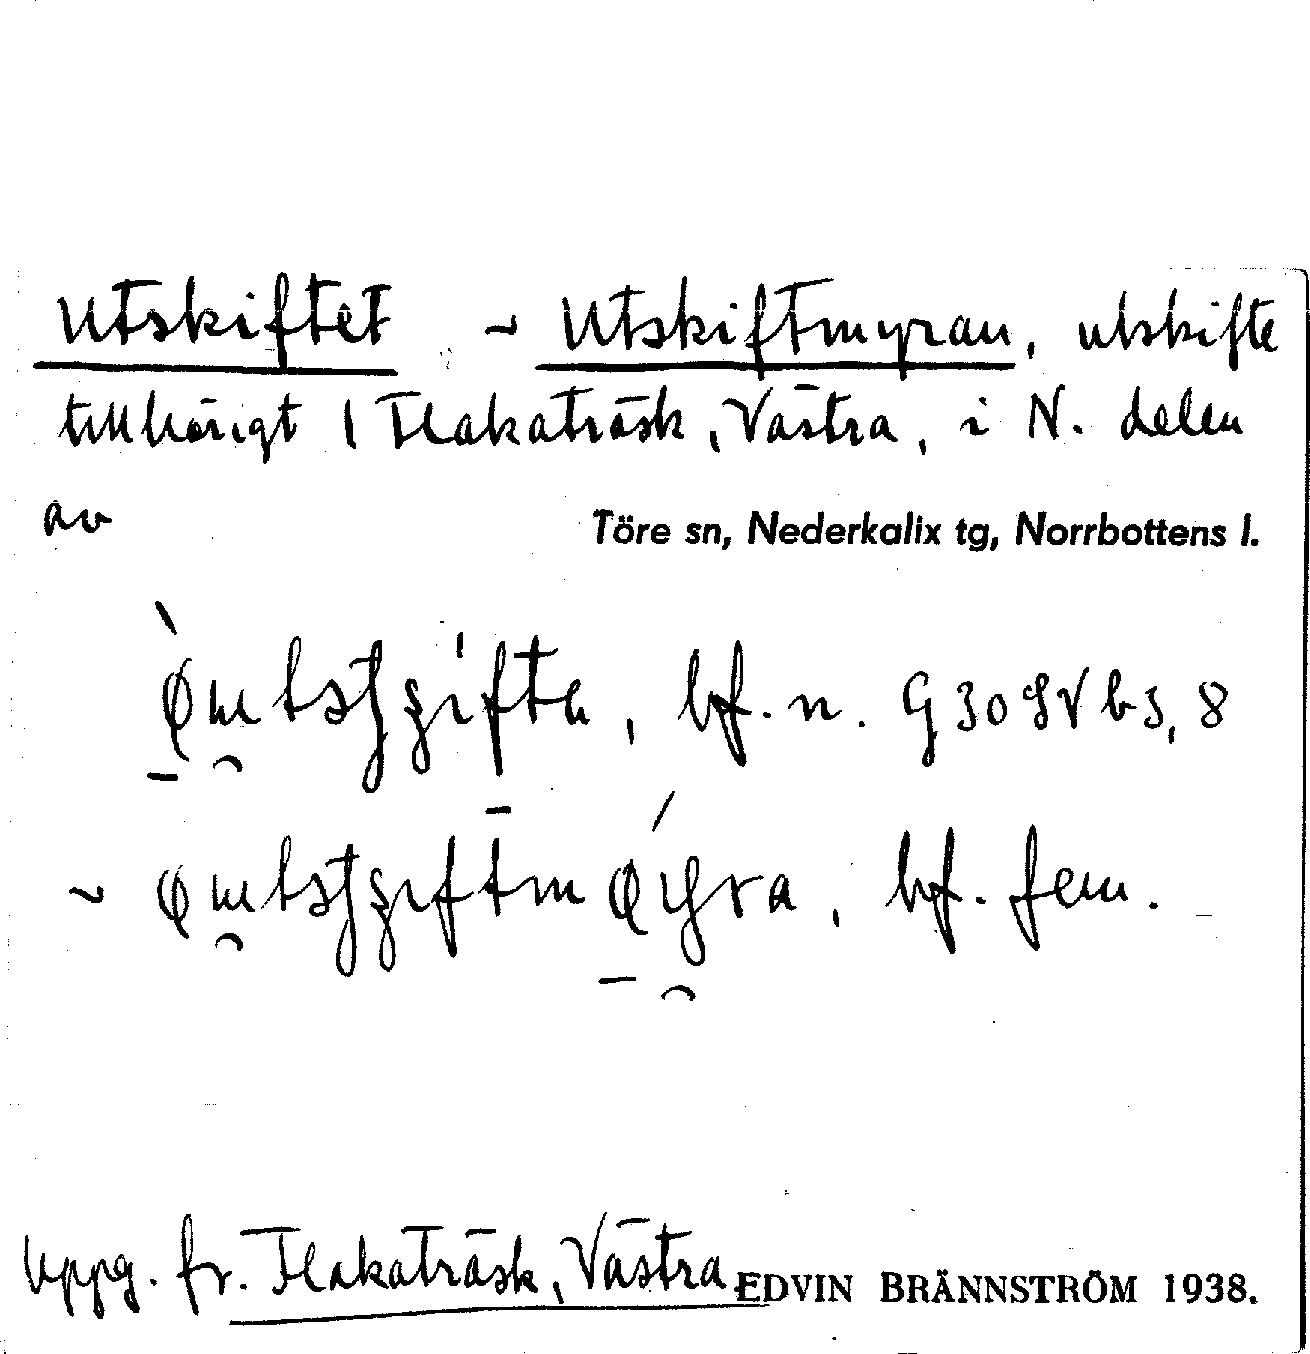 Utskiftet ~ Utskiftmyran, utskifte
tillhörigt 1 Flakaträsk, Västra, i N. delen
av Töre sn, Nederkalix tg, Norrbottens l.
bf. n. G30SVb3, 8
~ bf. fem.
Uppg. fr. Flakaträsk, Västra EDVIN BRÄNNSTRÖM 1938.